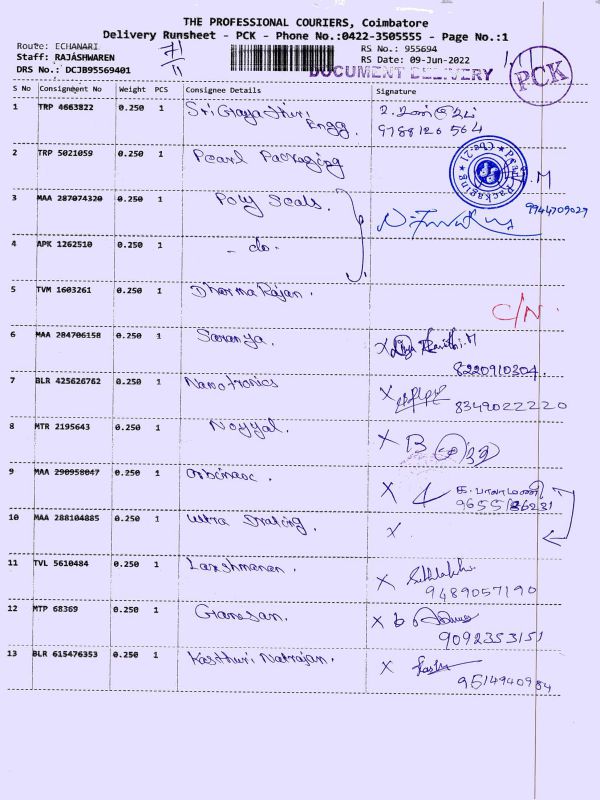 THE PROFESSIONAL COURIERS, Coimbatore
Delivery Runsheet - PCK - Phone No.:0422-3505555 - Page No.:1
Route: ECHANARI
Staff: RAJASHWAREN
DRS No.: DCJB95569401
RS No.: 955694
RS Date: 09-Jun-2022
DOCUMENT DELIVERY
PCK
S No Consignment No Weight PCS Consignee Details Signature
1 TRP 4663822 0.250 1 Sri Gayathiri Engg. 9788126564
2 TRP 5021059 0.250 1 Pearl Packaging
3 MAA 287074320 0.250 1 Poly Seals. 9944709029
4 APK 1262510 0.250 1 - do.
5 TVM 1603261 0.250 1 Dharma Rajan. C/N.
6 MAA 284706158 0.250 1 Saranya. 8220910304.
7 BLR 425626762 0.250 1 Nanotronics 8349022220
8 MTR 2195643 0.250 1 Noyyal. X B
9 MAA 290958047 0.250 1 X
10 MAA 288104885 0.250 1 Ultra X
11 TVL 5610484 0.250 1 Laxshmanan. X 9489057190
12 MTP 68369 0.250 1 Ganesan. X 9092353151
13 BLR 615476353 0.250 1 Kasthuri Natrajan. X 9514940984